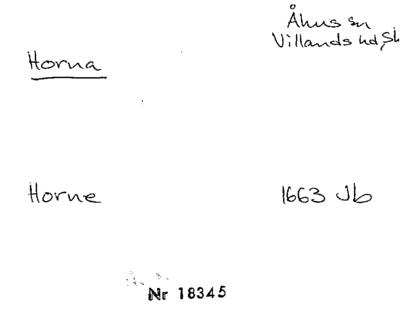 Åhus sn
Horna
Villands hd, Sk
Horne
1663 Jb
Nr 18345